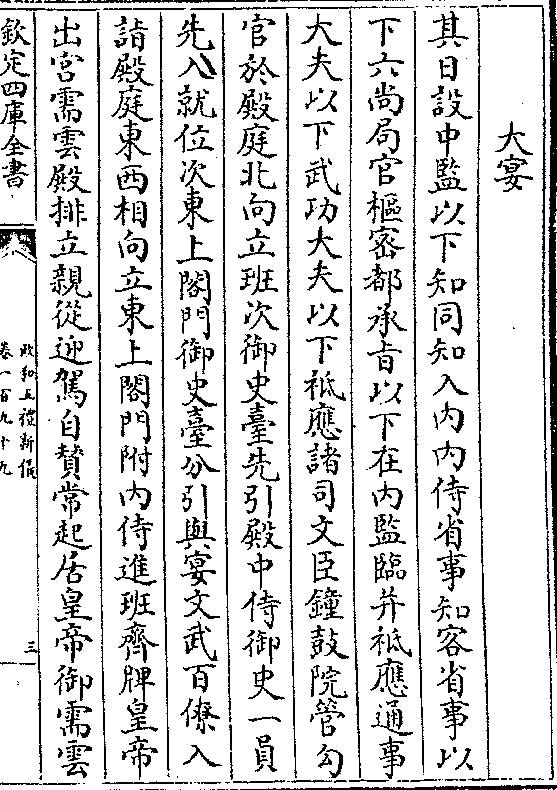 大宴
其日設中監以下知同知入内内侍省事知客省事以
下六尚局官樞密都承㫖以下在内監臨并袛應通事
大夫以下武功大夫以下袛應諸司文臣鐘鼓院管勾
官於殿庭北向立班次御史臺先引殿中侍御史一員
先入就位次東上閤門御史臺分引與宴文武百僚入
詣殿庭東西相向立東上閤門附内侍進班齊牌皇帝
出宫需雲殿排立親從迎駕自賛常起居皇帝御需雲
欽定四庫全書
政和五禮新儀
卷一百九十九
三